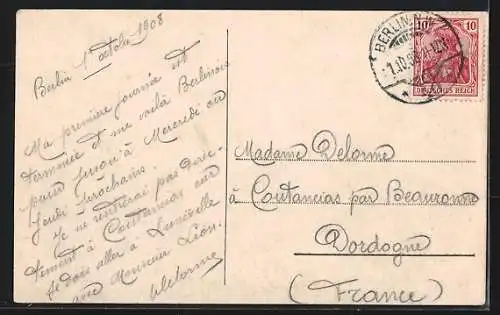 Berlin 1 octobre 1908
Ma première journée est
terminée et me voilà Berlinois
pour jusqu'à Mercredi ou
Jeudi prochains.
Je ne rentrerai pas direc-
tement à Coutancias car
je dois aller à Lunéville
avec Monsieur Léon.
Delorme
BERLIN N.W.
1.10.08
10 10
DEUTSCHES REICH
Madame Delorme
à Coutancias par Beauronne
Dordogne
(France)